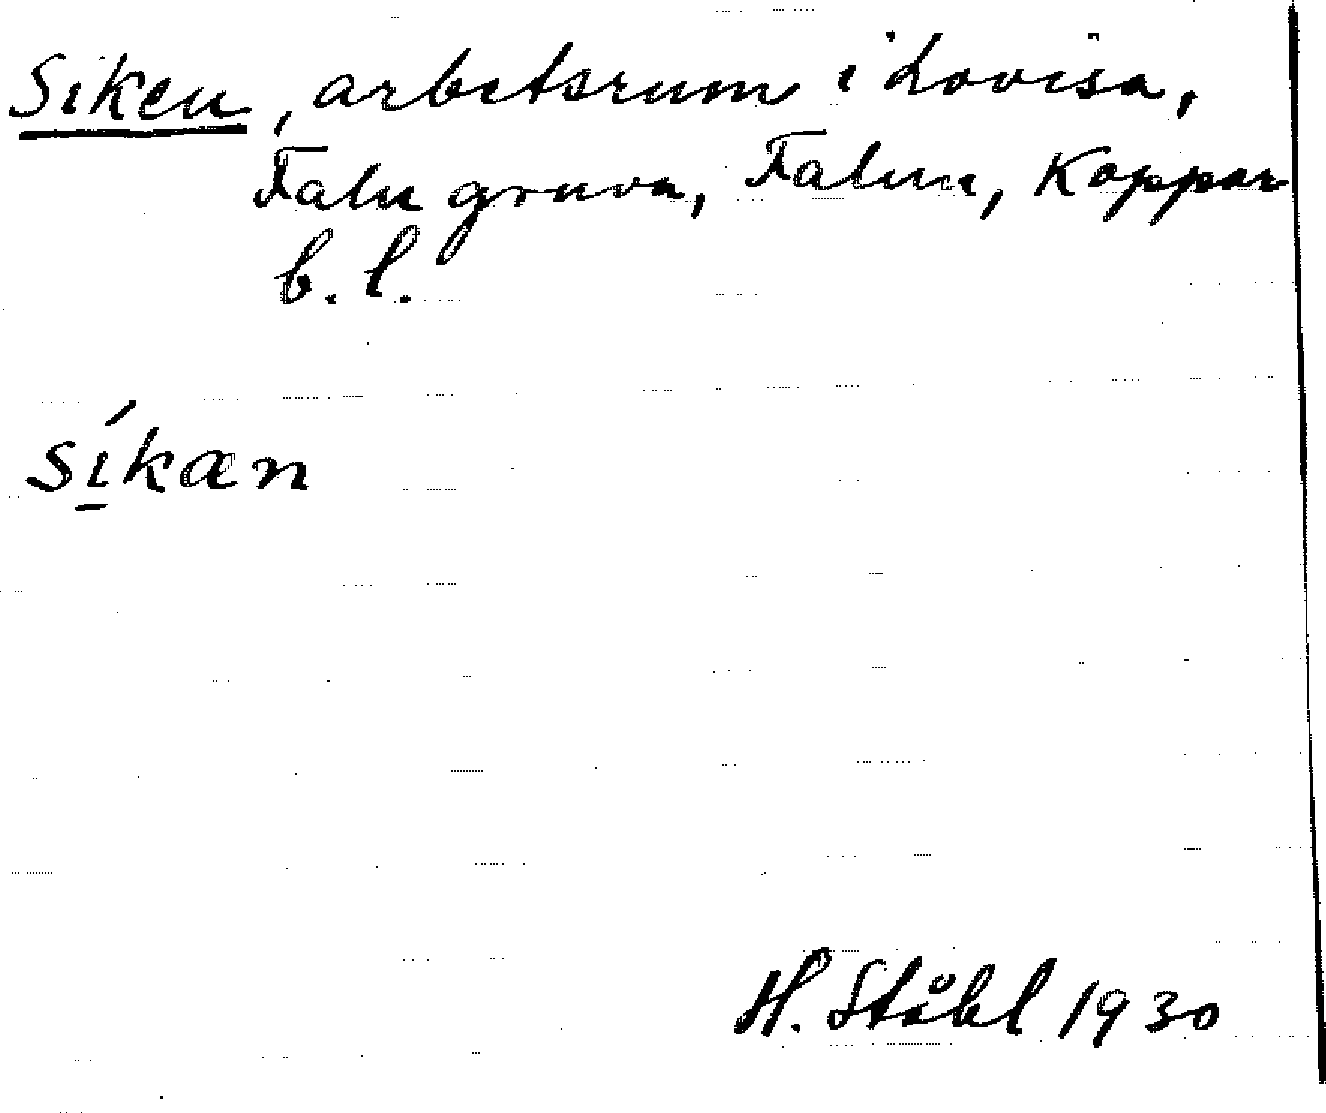 Siken, arbetsrum i Lovisa,
Falu gruva, Falun, Koppar
b. l.
síkæn
H. Ståhl 1930